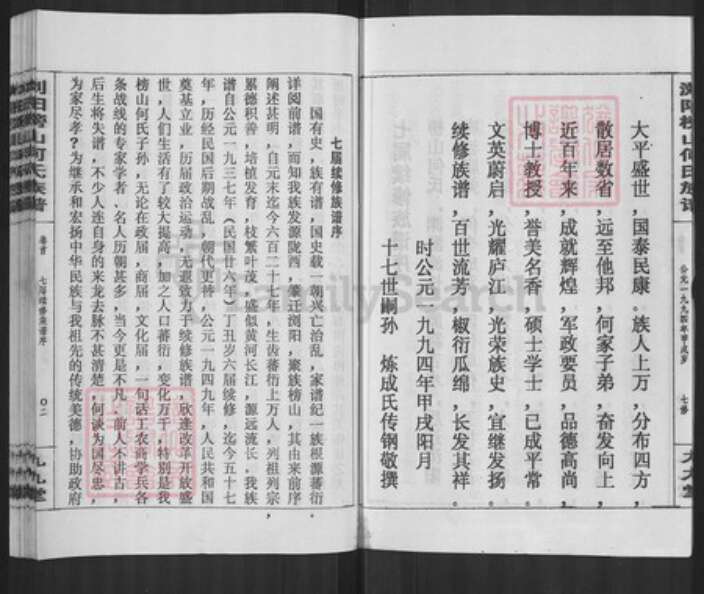 浏阳榜山何氏族谱
公元一九九四年甲戌岁
七修
大平盛世，国泰民康。族人上万，分布四方，
散居数省，远至他邦，何家子弟，奋发向上，
近百年来，成就辉煌，军政要员，品德高尚，
博士教授，誉美名香，硕士学士，已成平常。
文英蔚启，光耀庐江，光荣族史，宜继发扬。
续修族谱，百世流芳，椒衍瓜绵，长发其祥。
时公元一九九四年甲戌阳月
十七世嗣孙 炼成氏传钢敬撰
七届续修族谱序
国有史，族有谱，国史载一朝兴亡治乱，家谱纪一族根源蕃衍。
详阅前谱，而知我族发源陇西，肇迁浏阳，聚族榜山，其由来前序
阐述甚明，自元末迄今六百二十七年，生齿蕃衍上万人，列祖列宗，
累德积善，培植发育，枝繁叶茂，盛似黄河长江，源远流长，我族
谱自公元一九三七年（民国廿六年）丁丑岁六届续修，迄今五十七
年，历经民国后期战乱，朝代更替，公元一九四九年，人民共和国
奠基立业，历届政治运动，无遐致力于续修族谱，欣逢改革开放盛
世，人们生活有了较大提高，加之人口蕃衍，变化万千，特别是我
榜山何氏子孙，无论在政届，商届，文化届，一句话工农商学兵各
条战线的专家学者、名人历朝甚多，当今更是不凡，前人不讲古，
后生将失谱，不少人连自身的来龙去脉不甚清楚，何谈为国尽忠，
为家尽孝？为继承和宏扬中华民族与我祖先的传统美德，协助政府
浏阳榜山何氏族谱
卷首
七届续修族谱序
〇二
FamilySearch